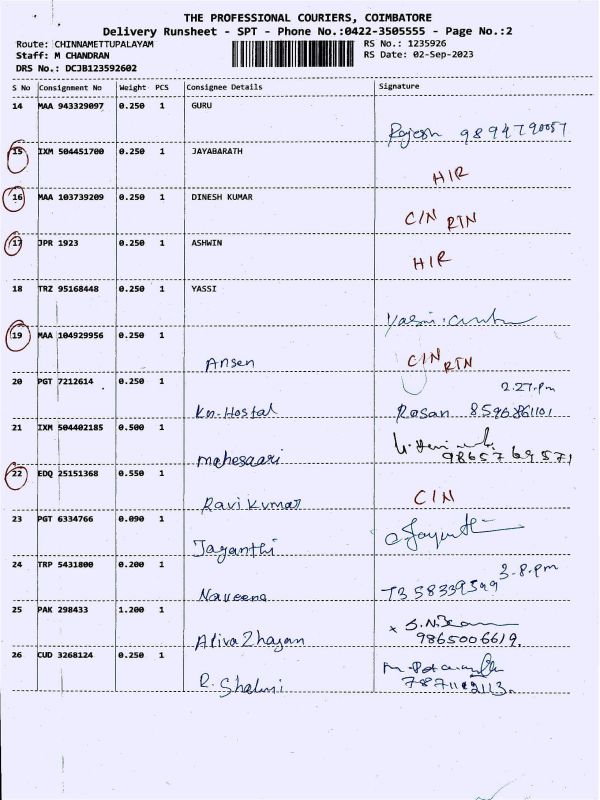 THE PROFESSIONAL COURIERS, COIMBATORE
Delivery Runsheet - SPT - Phone No.:0422-3505555 - Page No.:2
Route: CHINNAMETTUPALAYAM RS No.: 1235926
Staff: M CHANDRAN RS Date: 02-Sep-2023
DRS No.: DCJB123592602
S No Consignment No Weight PCS Consignee Details Signature
14 MAA 943329097 0.250 1 GURU
Rajesh 9894790057
15 IXM 504451700 0.250 1 JAYABARATH
HIR
16 MAA 103739209 0.250 1 DINESH KUMAR
CIN RTN
17 JPR 1923 0.250 1 ASHWIN
HIR
18 TRZ 95168448 0.250 1 YASSI
19 MAA 104929956 0.250 1
Ansen CIN RTN
20 PGT 7212614 0.250 1 2.27.pm
Kn-Hostal Rosan
21 IXM 504402185 0.500 1
mahesaari 9865769571
22 EDQ 25151368 0.550 1
Ravi Kumar CIN
23 PGT 6334766 0.090 1
Jaganthi
24 TRP 5431800 0.200 1 3-8.pm
Naveena 7358339599
25 PAK 298433 1.200 1
Aliva Zhagan 9865006619.
26 CUD 3268124 0.250 1
R. Shalini